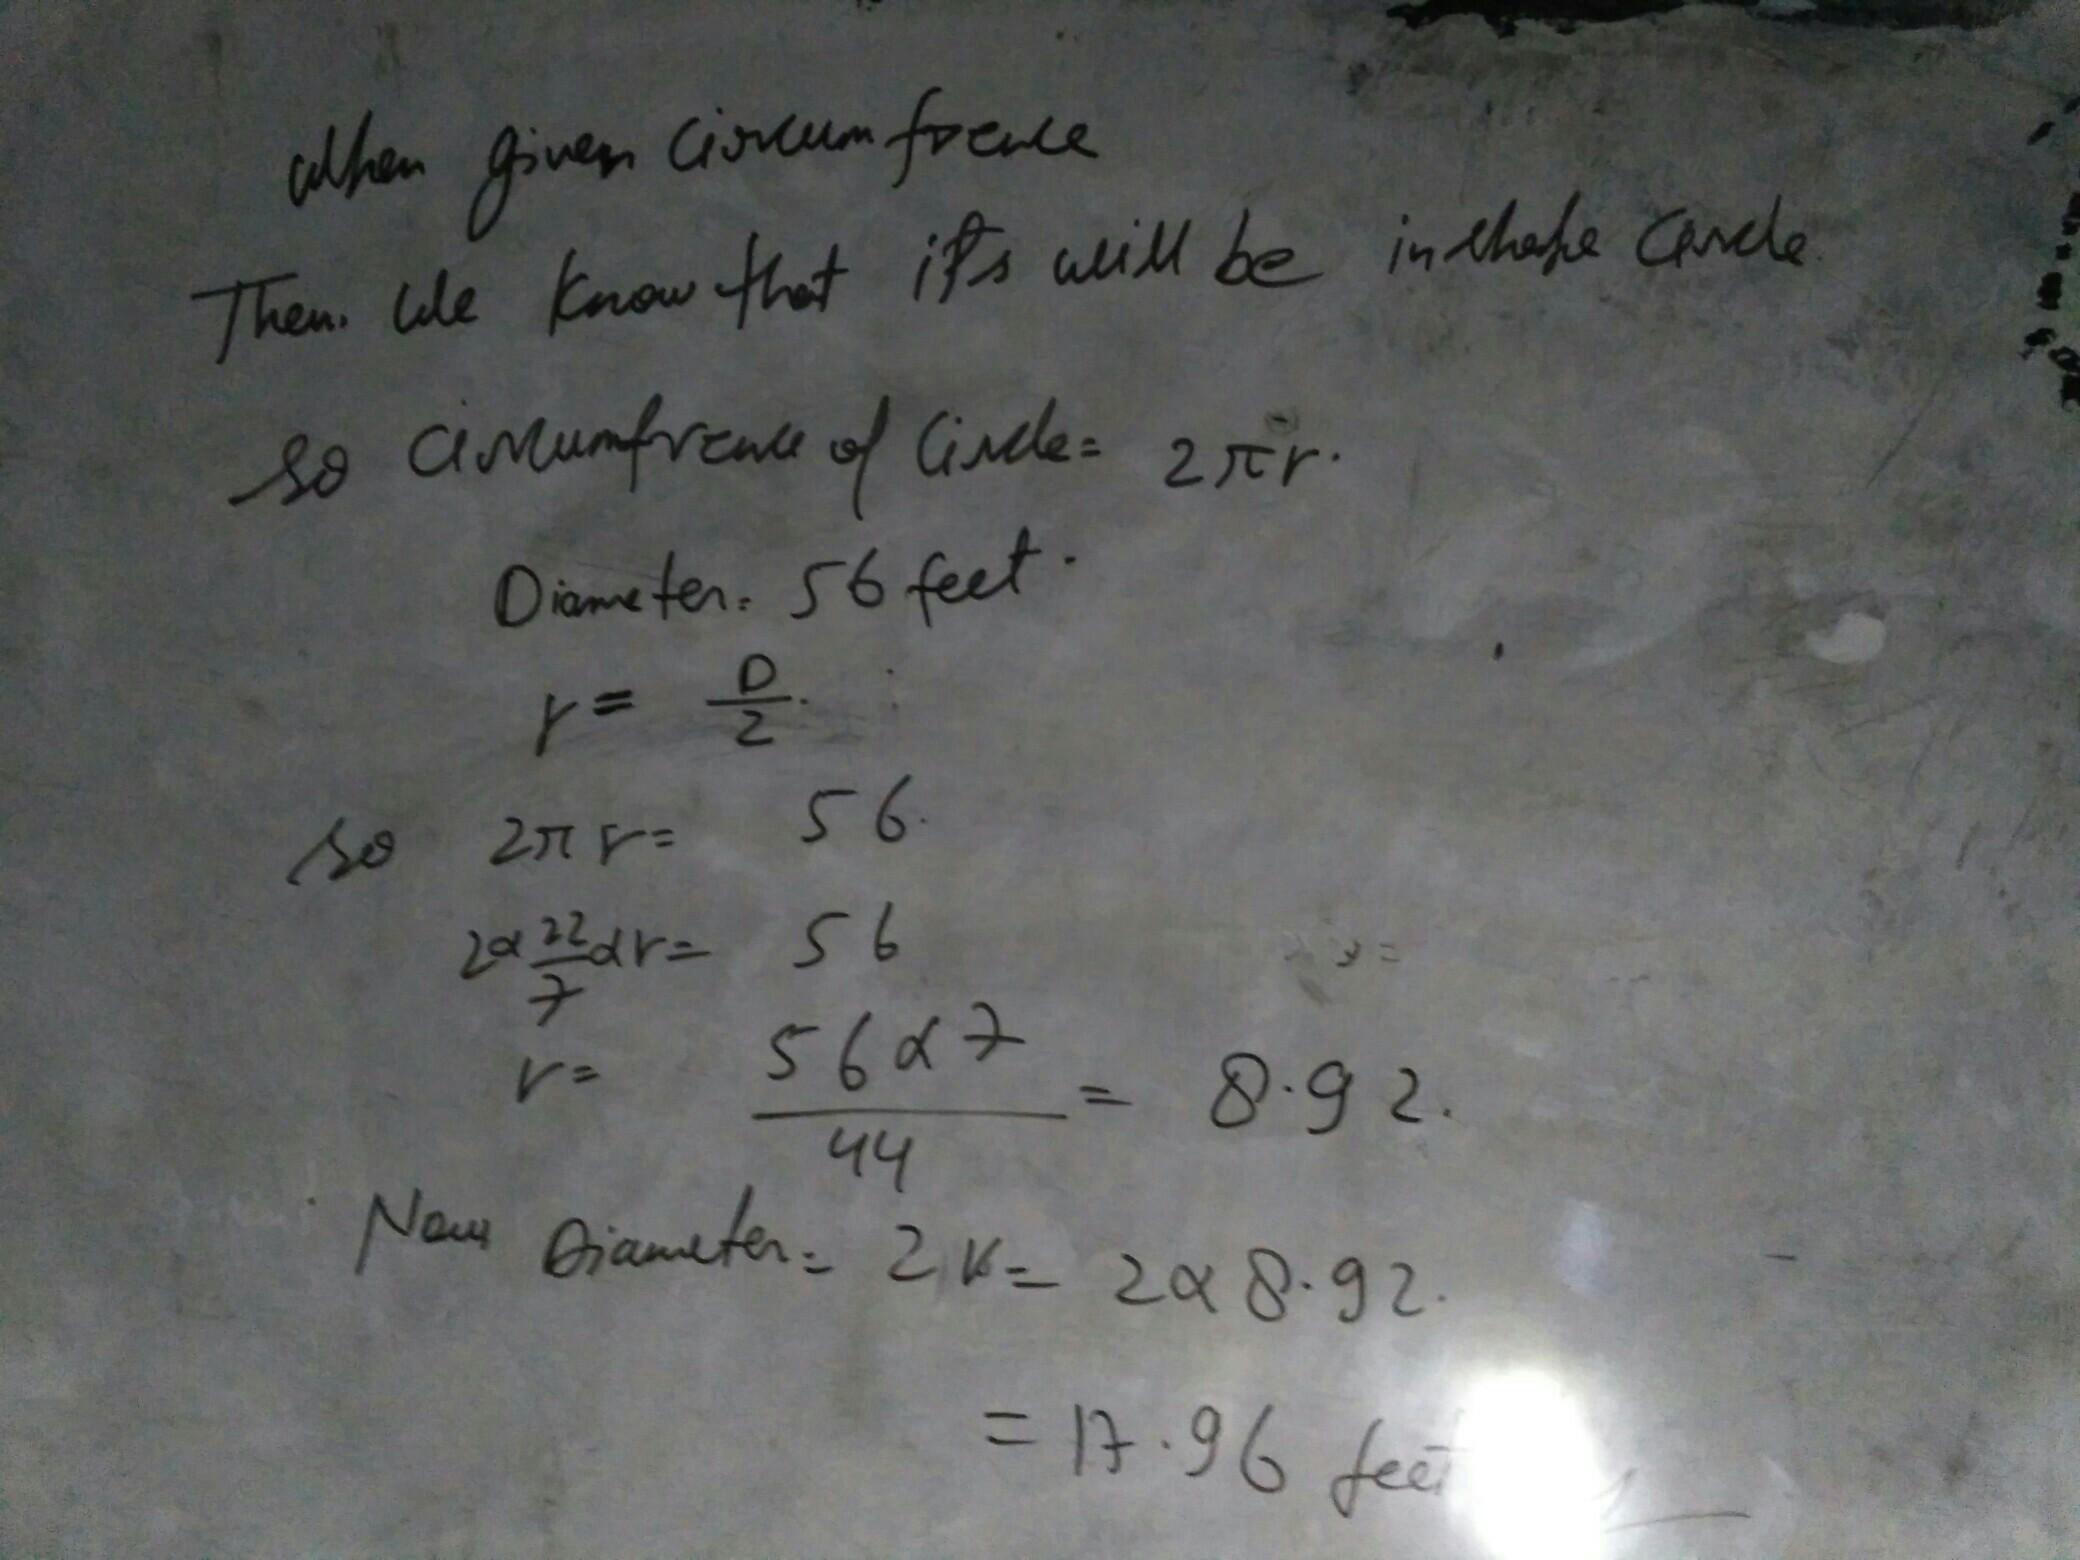 When given Circumfrence
Then. We Know that it's will be in shape Circle.
so Circumfrence of Circle = 2πr.
Diameter = 56 feet.
r = D/2.
so 2πr = 56.
2×22/7×r = 56
r = 56×7/44 = 8.92.
Now Diameter = 2r = 2×8.92.
= 17.96 feet